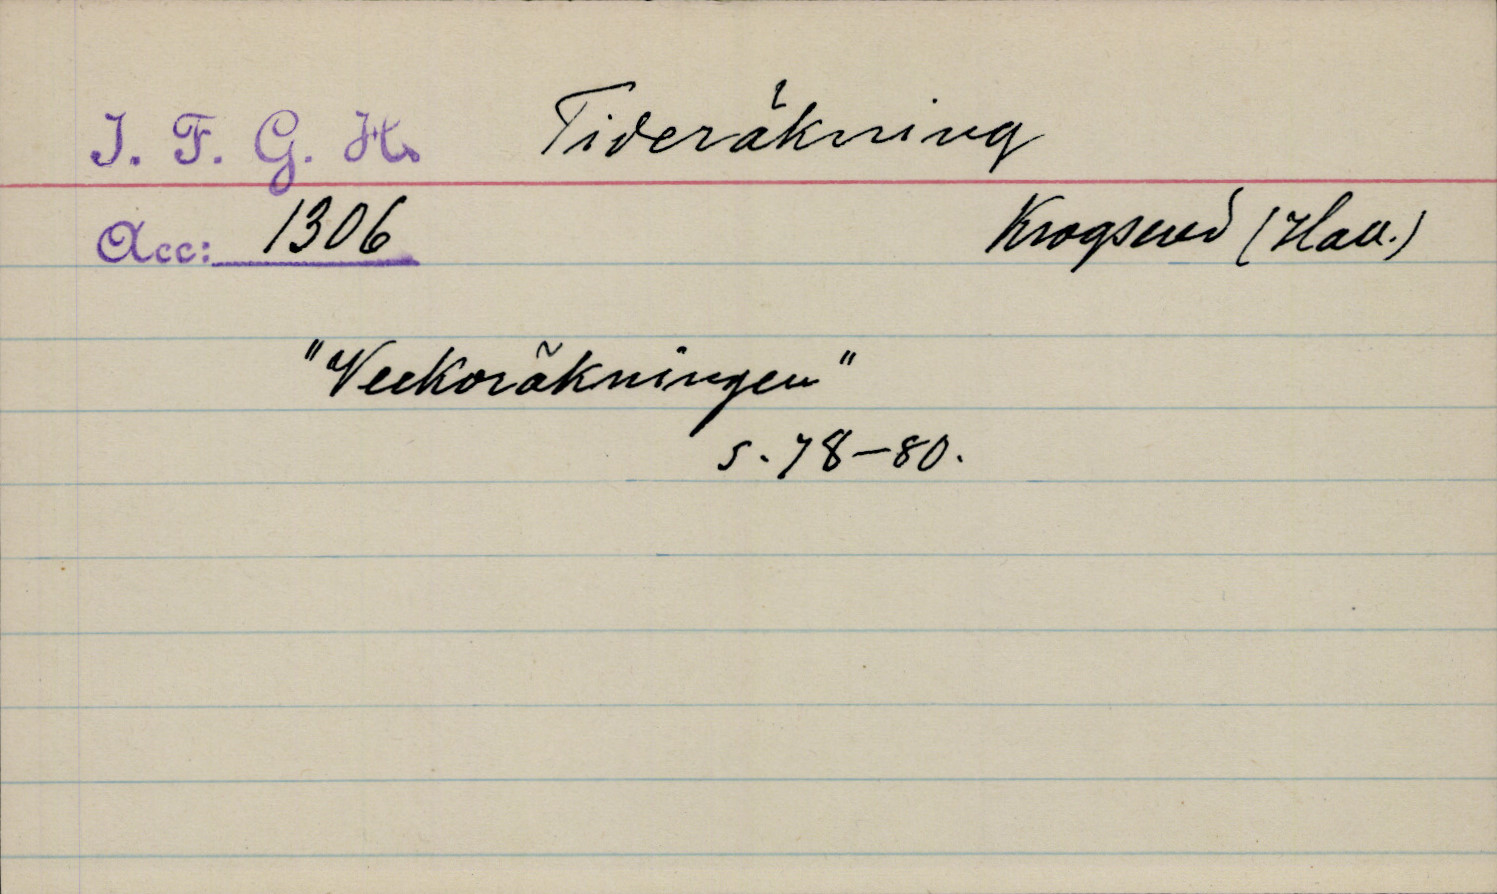 I. F. G. H. Tideräkning
Acc: 1306 Krogsered (Hall.)
"Veckoräkningen"
s. 78-80.